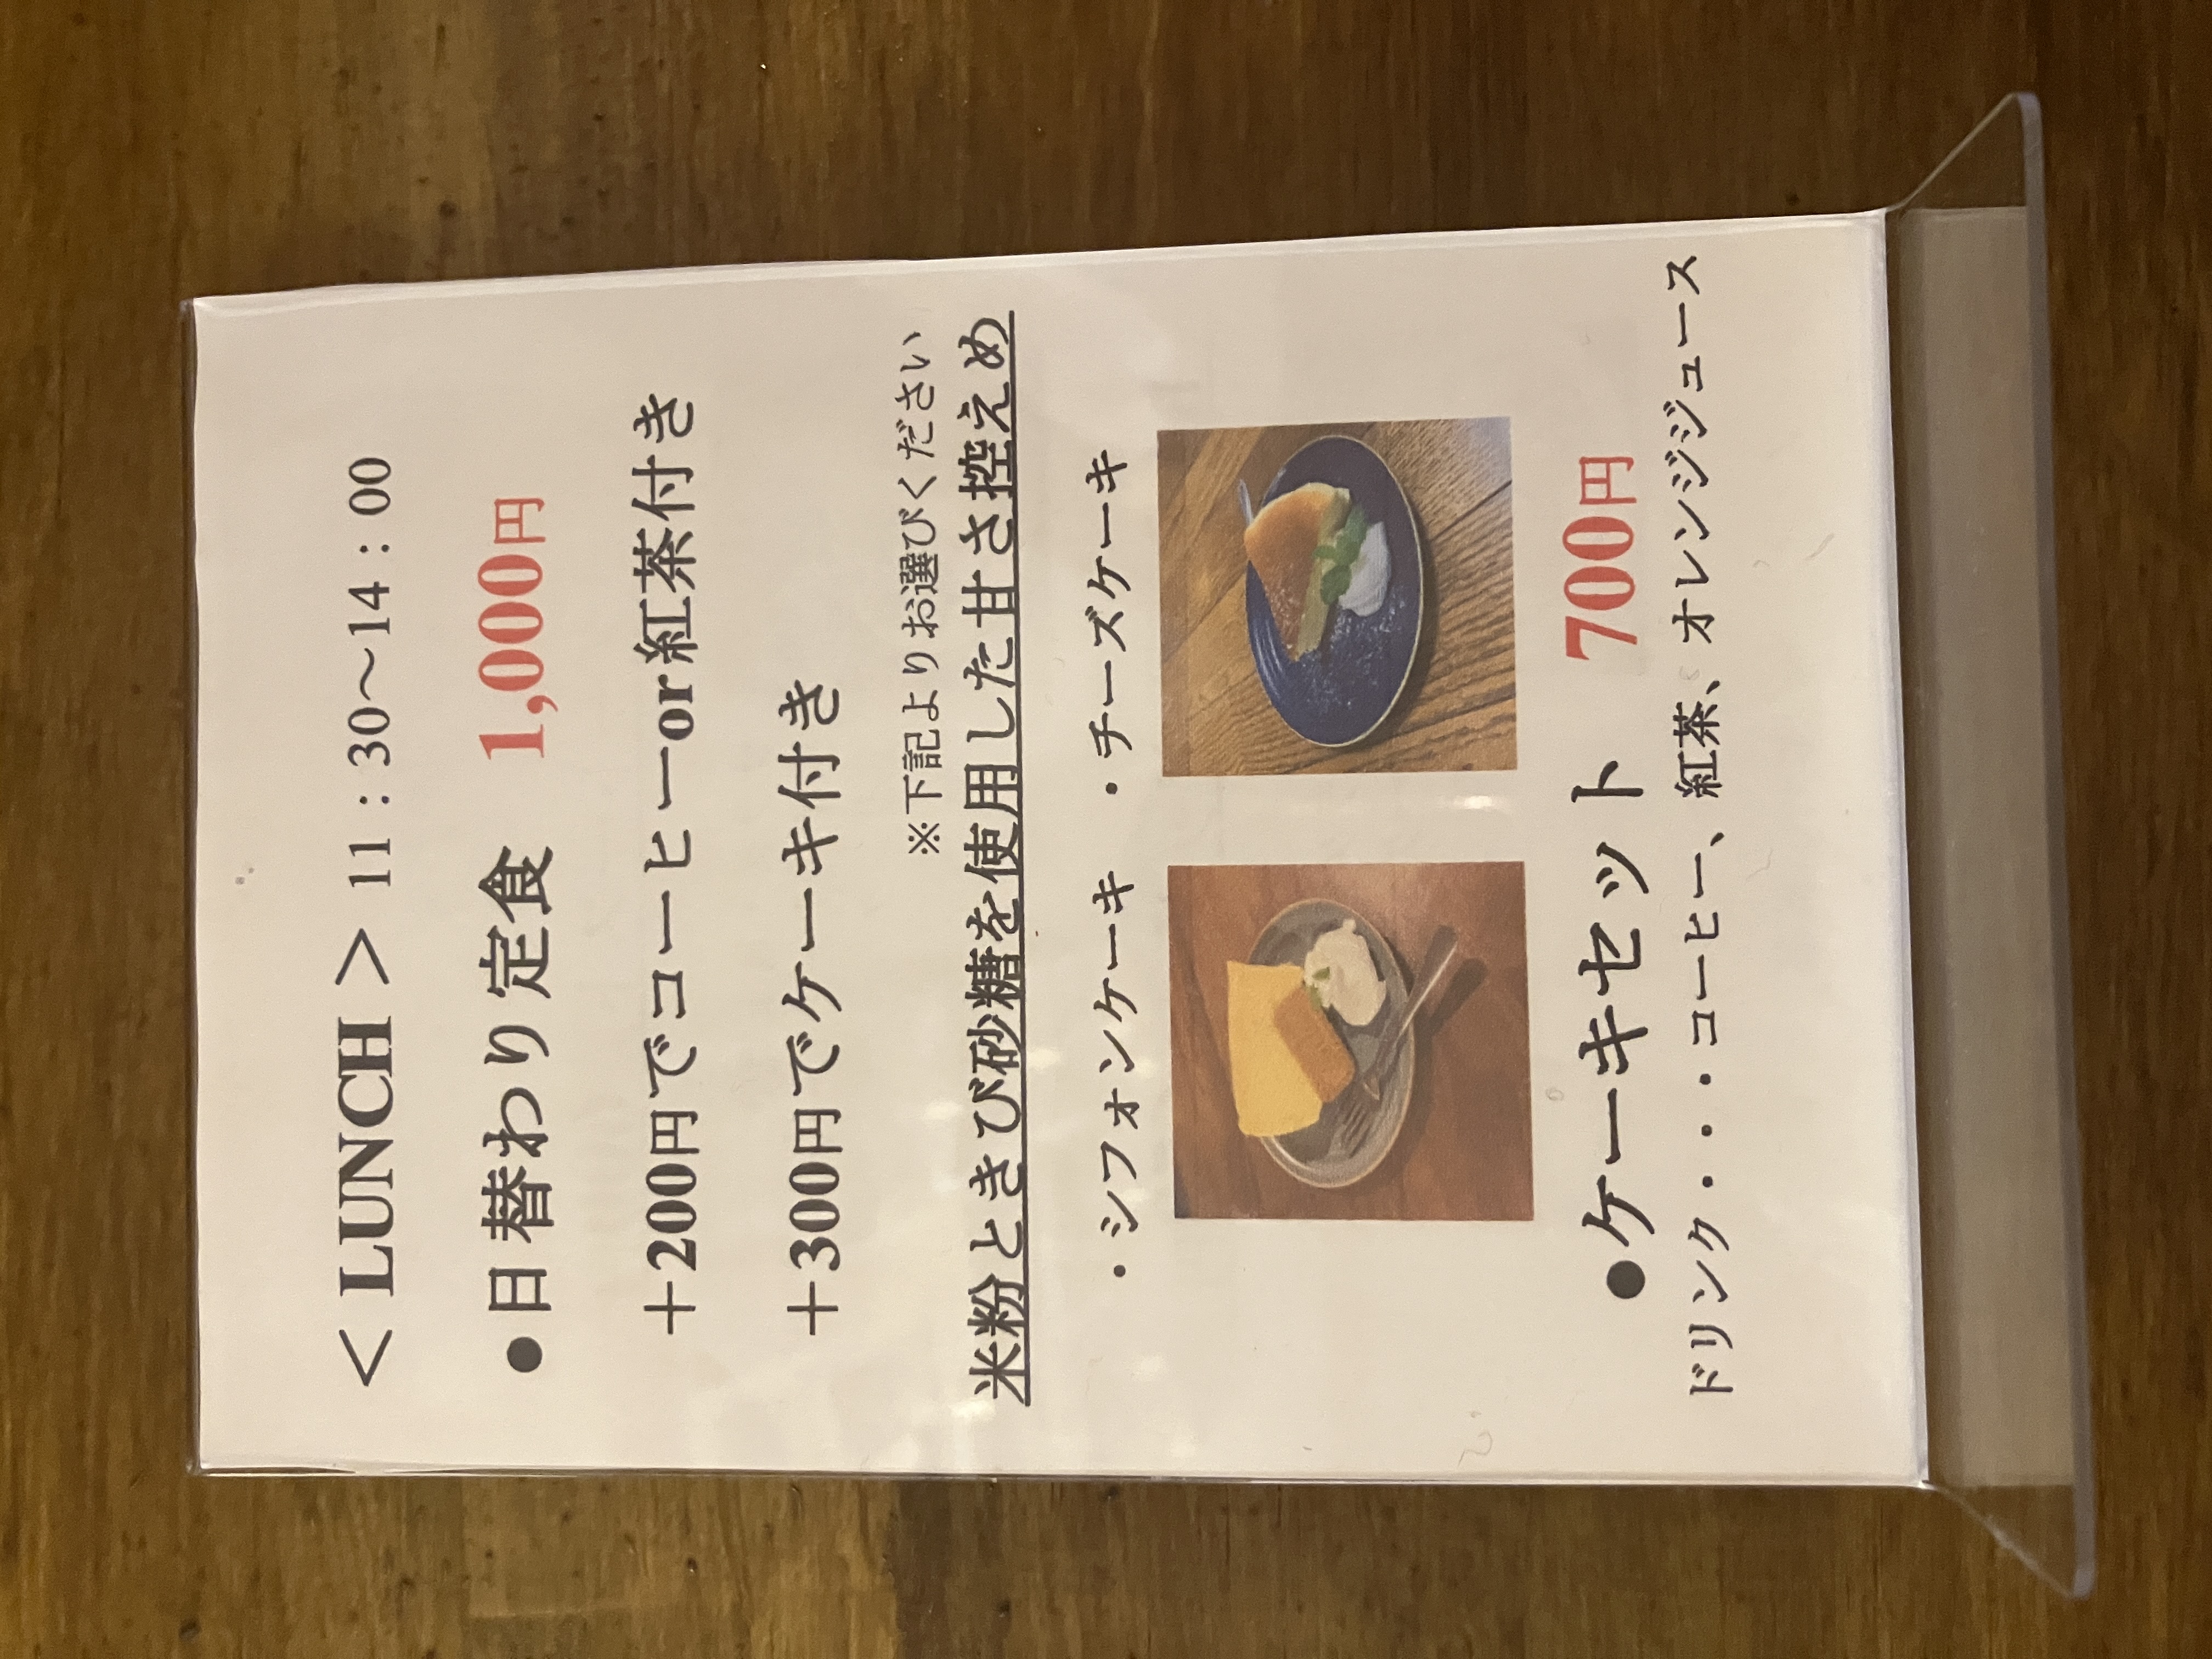 ＜LUNCH＞11：30～14：00
●日替わり定食　1,000円
＋200円でコーヒーor紅茶付き
＋300円でケーキ付き
※下記よりお選びください
米粉ときび砂糖を使用した甘さ控えめ
・シフォンケーキ　・チーズケーキ
●ケーキセット　700円
ドリンク・・・コーヒー、紅茶、オレンジジュース